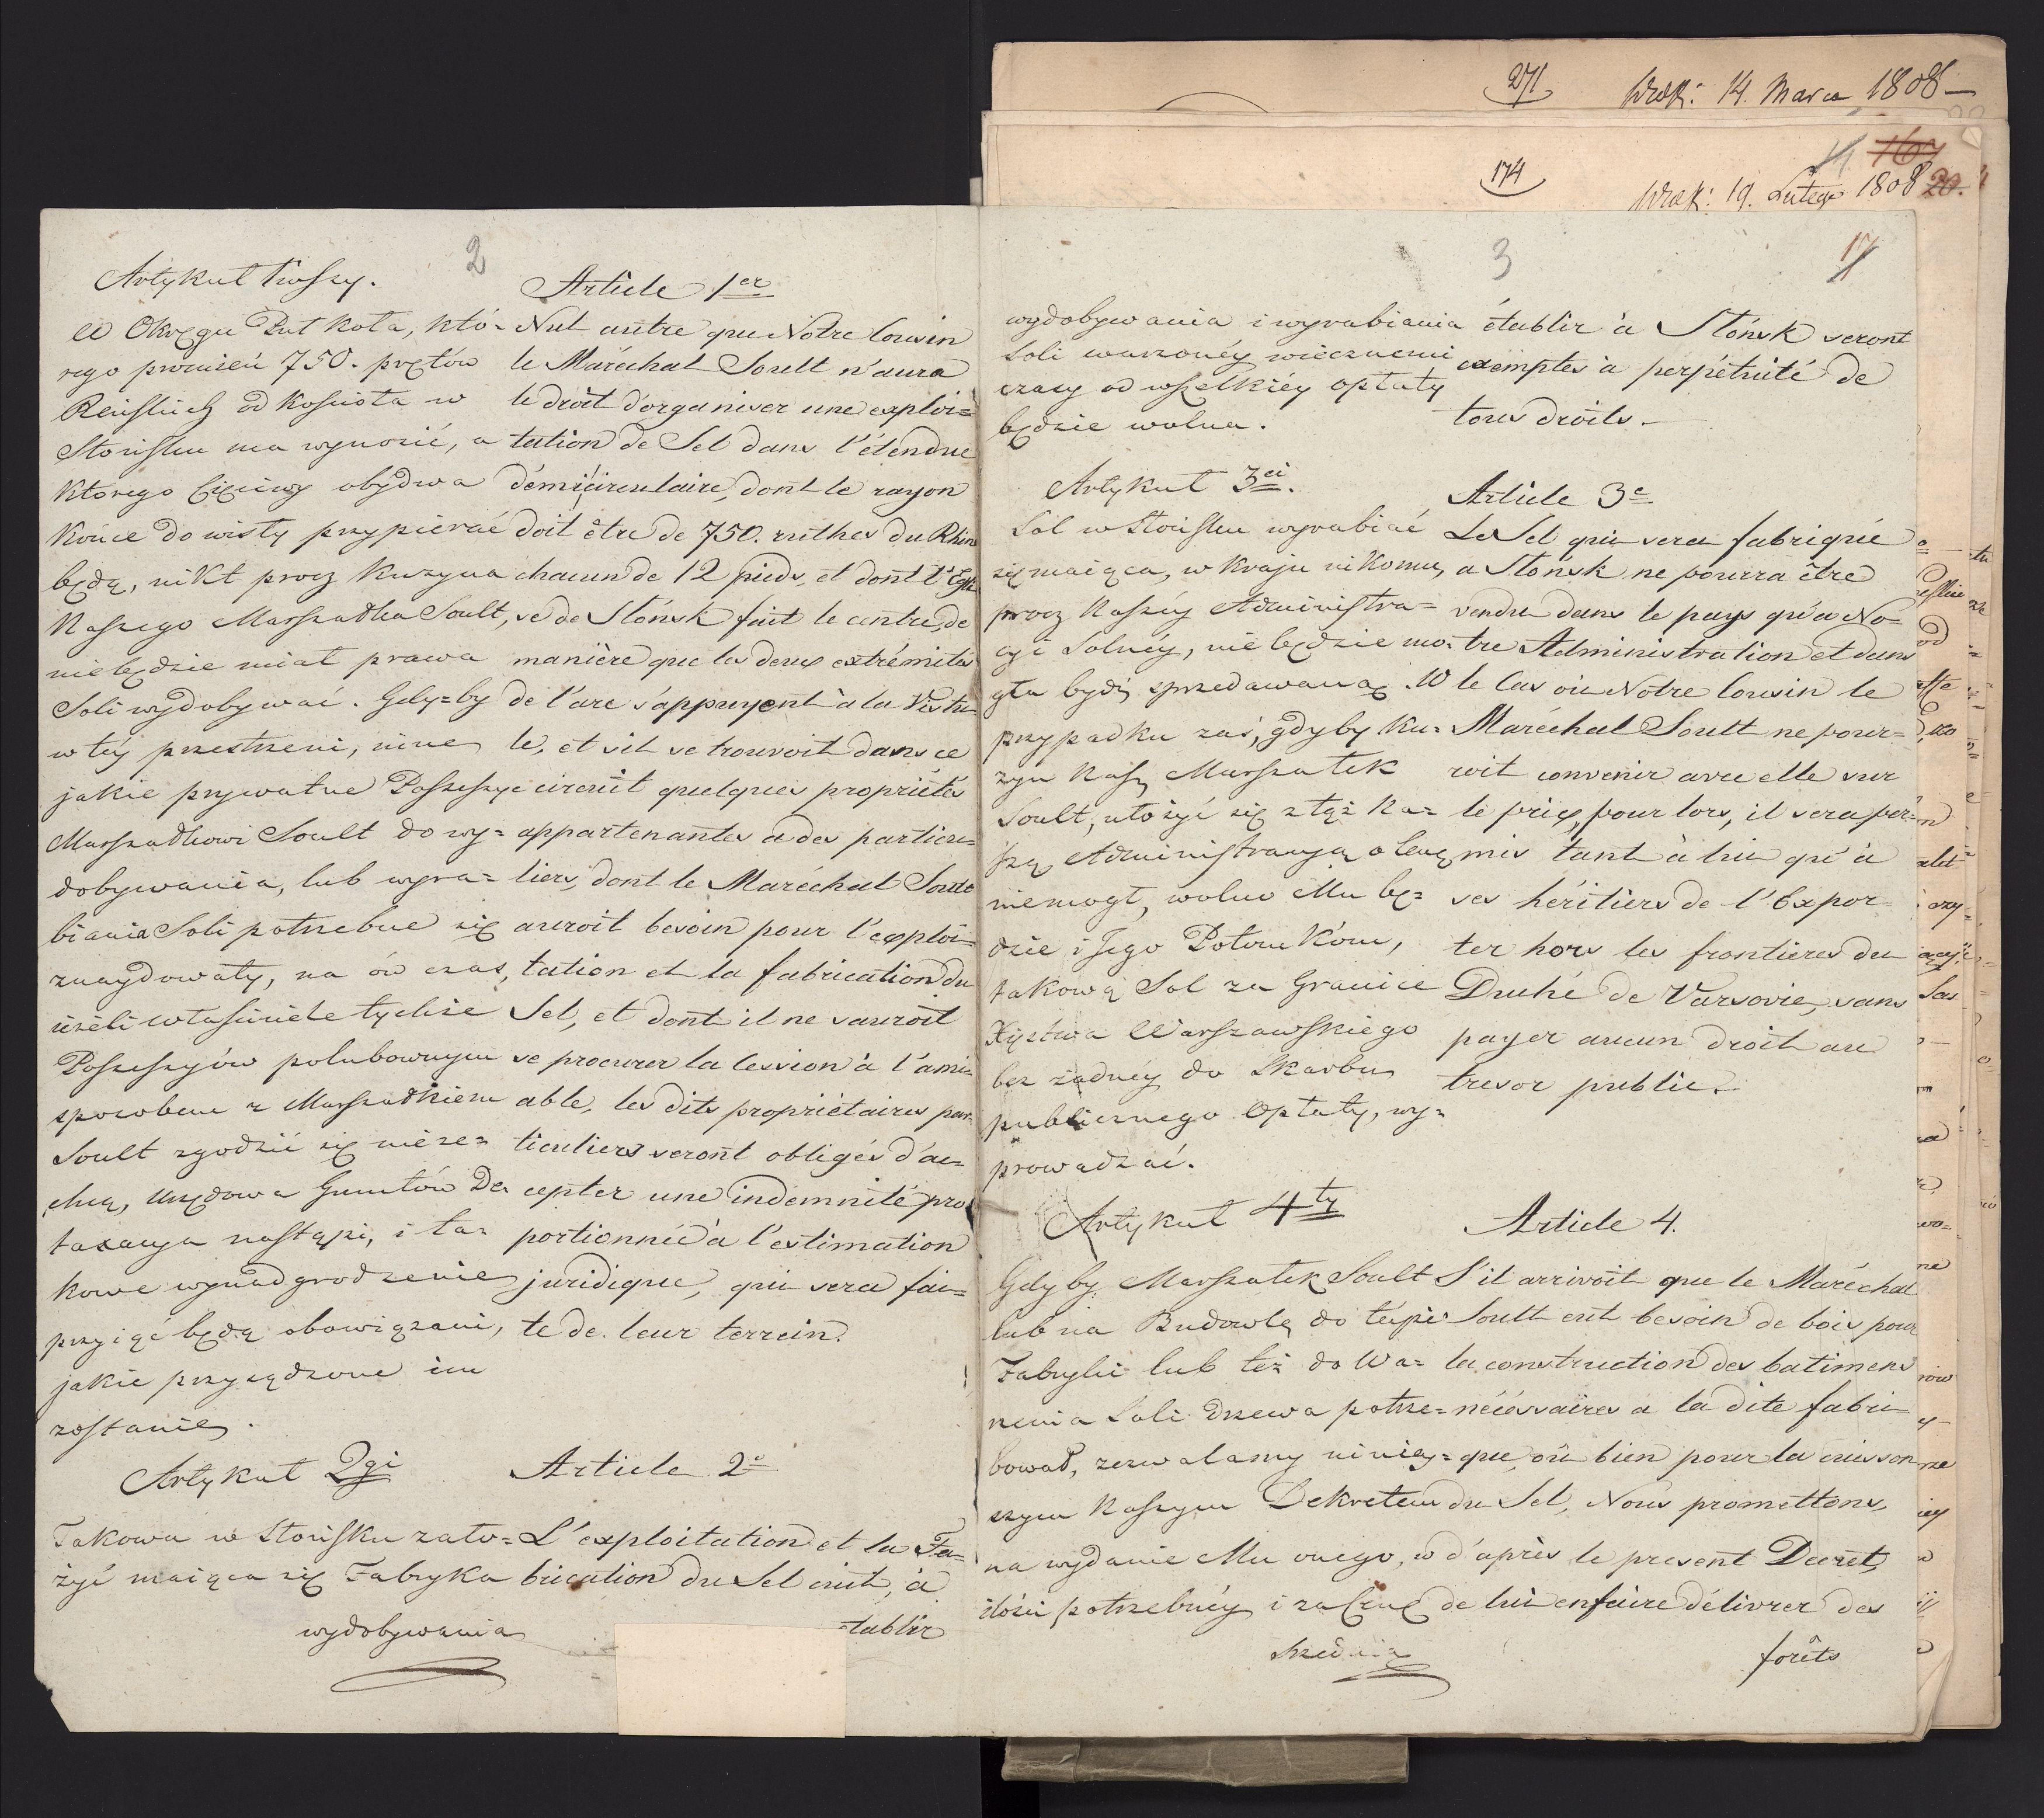 271
Wrok: 14. Marca 1808
174
Wrok: 19. Lutego 1808
20.
2
Artykuł 1wszy.
W Okręgu Puł Koła, któ=
rego promień 750. prętów
Reińskich od Kościoła w
Słońsku ma wynosić, a
którego Cięciwy obydwa
Końce do wisły przypierać
będą, nikt procz Kuzyna
Naszego Marszałka Soult,
niebędzie miał prawa
Soli wydobywać. Gdy=by
w tey przestrzeni, inne
jakie prywatne Possessye
Marszałkowi Soult do wy=
dobywania, lub wyra=
biania Soli potrzebne się
znaydowały, na ów czas,
ieżeli właściciele tychże
Possessyów polubownym
sposobem z Marszałkiem
Soult zgodzić się nieze=
chcą, Urzędowa Gruntów De
taxacya nastąpi, i ta=
kowe wynadgrodzenie
przyiąć będą obowiązani,
jakie przysądzone im
zostanie.
Article 1er
Nul autre que Notre Cousin
le Maréchal Soult n'aura
le droit d'organiser une exploi=
tation de Sel dans l'étendue
démicirculaire, dont le rayon
doit être de 750. ruthes du Rhin
chacun de 12 pieds et dont l'Egli
se de Slónsk fait le centre, de
manière que les deux extrémités
de l'arc s'appuyent à la Vistu=
le, et s'il se trouvoit dans ce
circuit quelques propriétés
appartenantes à des particu=
liers, dont le Maréchal Soult
auroit besoin pour l'exploi=
tation et la fabrication du
Sel, et dont il ne sauroit
se procurer la Cession à l'ami=
able, les dits propriétaires par=
ticuliers seront obligés d'ac=
cepter une indemnité pro
portionnée à l'estimation
juridique, qui sera fai=
te de leur terrein.
Artykuł 2gi
Takowa w Słońsku zało=
żyć maiąca się Fabryka
wydobywania
Article 2e
L'exploitation et la Fa=
brication du Sel cuit, à
=tablir
3
17
wydobywania i wyrabiania
Soli warzonéy wiecznemi
czasy od wszelkiéy opłaty
będzie wolna.
établir à Slónsk seront
exemptes à perpétuité de
tous droits.
Artykuł 3ci.
Sol w Słońsku wyrabiać
się maiąca, w kraju nikomu,
procz Naszéy Administra=
cyi Solnéy, nie będzie mo=
gła bydź sprzedawaną. W
przypadku zaś, gdyby Ku=
zyn Nasz Marszałek
Soult, ułożyć się z tąż Na=
szą Administracyą o Cenę
niemogł, wolno Mu bę=
dzie i Jego Potomkóm,
takową Sol za Granice
Xięstwa Warszawskiego
bez żadnéy do Skarbu
publicznego Opłaty, wy=
prowadzać.
Article 3e
Le Sel qui sera fabriqué
a Slónsk ne pourra être
vendu dans le pays qu'a No=
tre Administration et dans
le Cas où Notre Cousin le
Maréchal Soult ne pour=
roit convenir avec elle sur
le prix, pour lors, il sera per=
mis tant à lui qu'à
ses héritiers de l'Expor=
ter hors les frontieres du
Duché de Varsovie, sans
payer aucun droit au
tresor public.
Artykuł 4ty
Gdyby Marszałek Soult
lub na Budowlę do téyże
Fabryki lub też do Wa=
rzenia Soli drzewa potrze=
bował, zezwalamy niniey=
szym Naszym Dekretem
na wydanie Mu onego, w
ilości potrzebnéy i za Cenę
Article 4.
S'il arrivoit que le Maréchal
Soult eut besoin de bois pour
la construction des batimens
nécéssaires a la dite fabri=
que, où bien pour la cuisson
du Sel, Nous promettons,
d'après le present Decret,
de lui en faire délivrer des
forêts